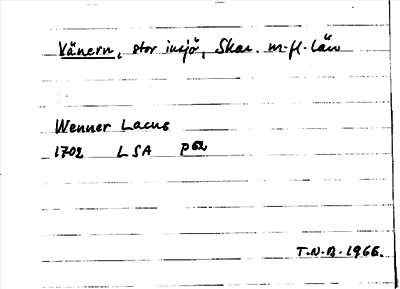 Vänern, stor insjö, Skar. m. fl. län
Wenner Lacus
1702 LSA p 62
T.N.B. 1966.